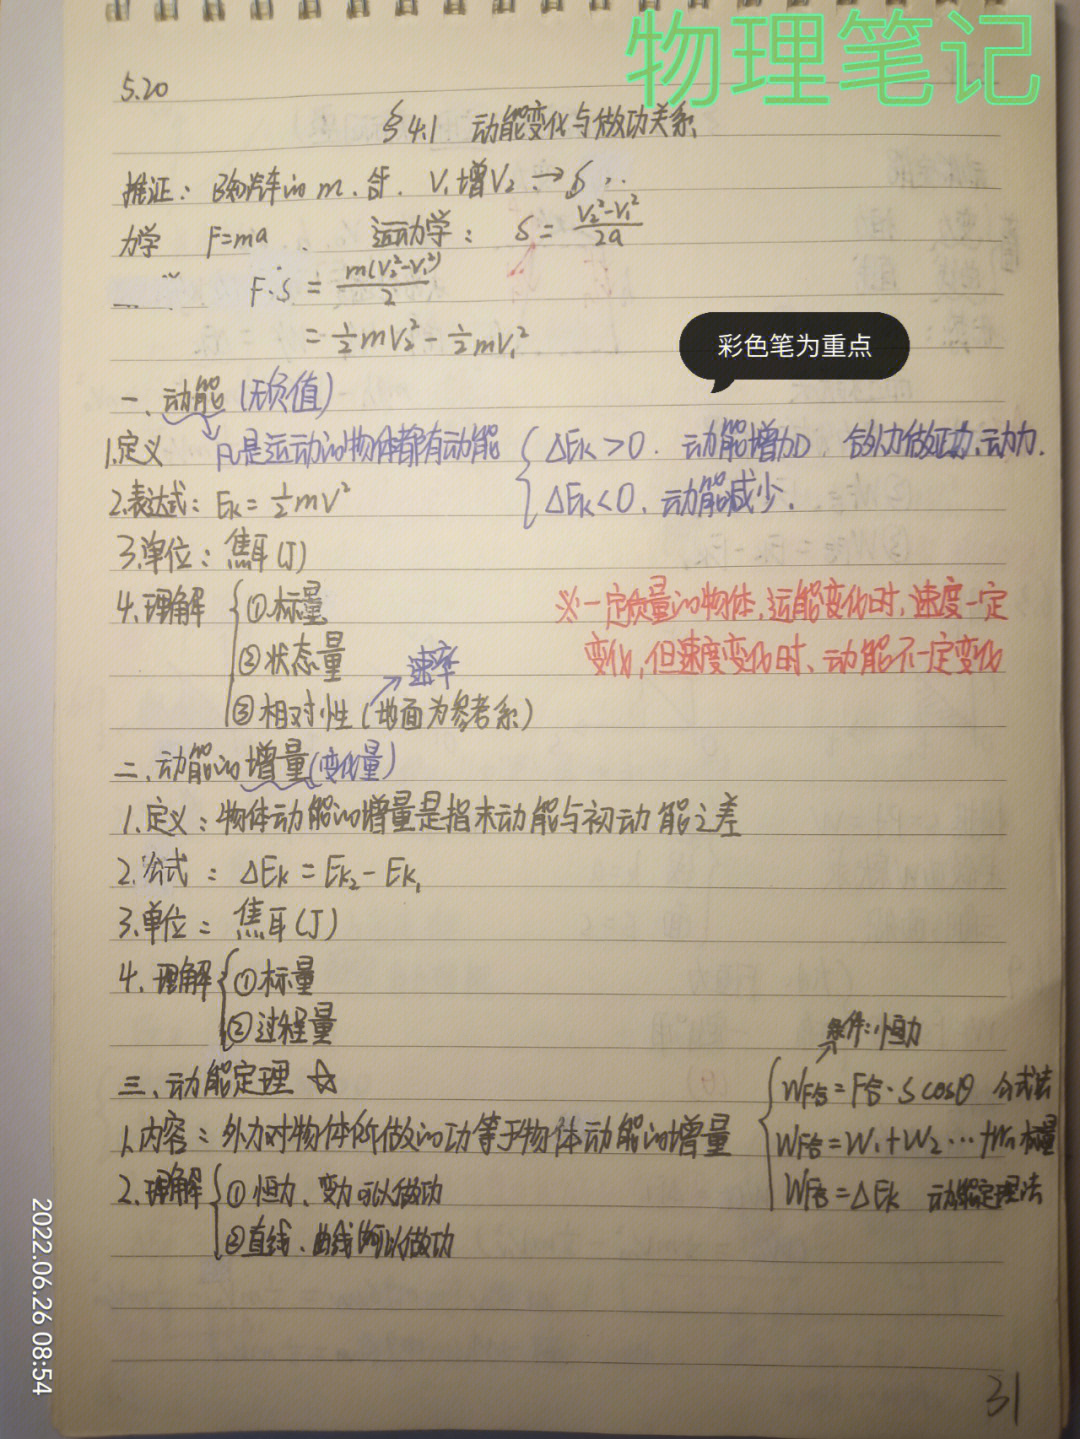 物理笔记
5.20
§4.1 动能变化与做功关系
推证：已知汽车的m.合. V₁增V₂→S
力学 F=ma 运动学：S=(V₂²-V₁²)/2a
F·S=m(V₂²-V₁²)/2
=½mV₂²-½mV₁²
彩色笔为重点
一、动能(无负值)
1.定义 凡是运动的物体都有动能
ΔEk>0.动能增加 合外力做正功、动力.
ΔEk<0.动能减少.
2.表达式：Ek=½mV²
3.单位：焦耳(J)
4.理解 ①标量
②状态量
③相对性(地面为参考系)
速率
※一定质量的物体,运能变化时,速度一定
变化,但速度变化时、动能不一定变化
二、动能的增量(变化量)
1.定义：物体动能的增量是指末动能与初动能之差
2.公式：ΔEk=Ek₂-Ek₁
3.单位：焦耳(J)
4.理解 ①标量
②过程量
三、动能定理☆
1.内容：外力对物体所做的功等于物体动能的增量
2.理解 ①恒力、变力可以做功
②直线、曲线 可以做功
条件:恒力
WF合=F合·S cosθ 公式法
WF合=W₁+W₂…+Wn 标量
WF合=ΔEk 动能定理法
2022.06.26 08:54
31